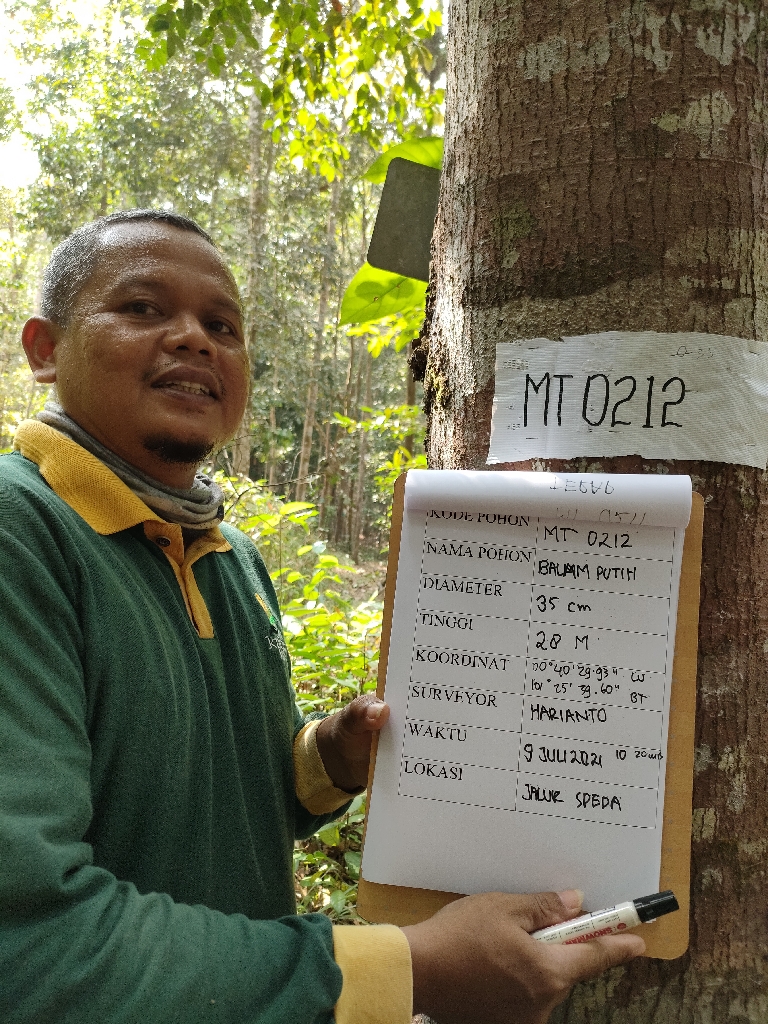 MT 0212
KODE POHON MT 0212
NAMA POHON BALAM PUTIH
DIAMETER 35 cm
TINGGI 28 M
KOORDINAT 00° 40' 29.93" LU
101° 25' 39.60" BT
SURVEYOR HARIANTO
WAKTU 9 JULI 2021 10 20 WIB
LOKASI JALUR SPEDA